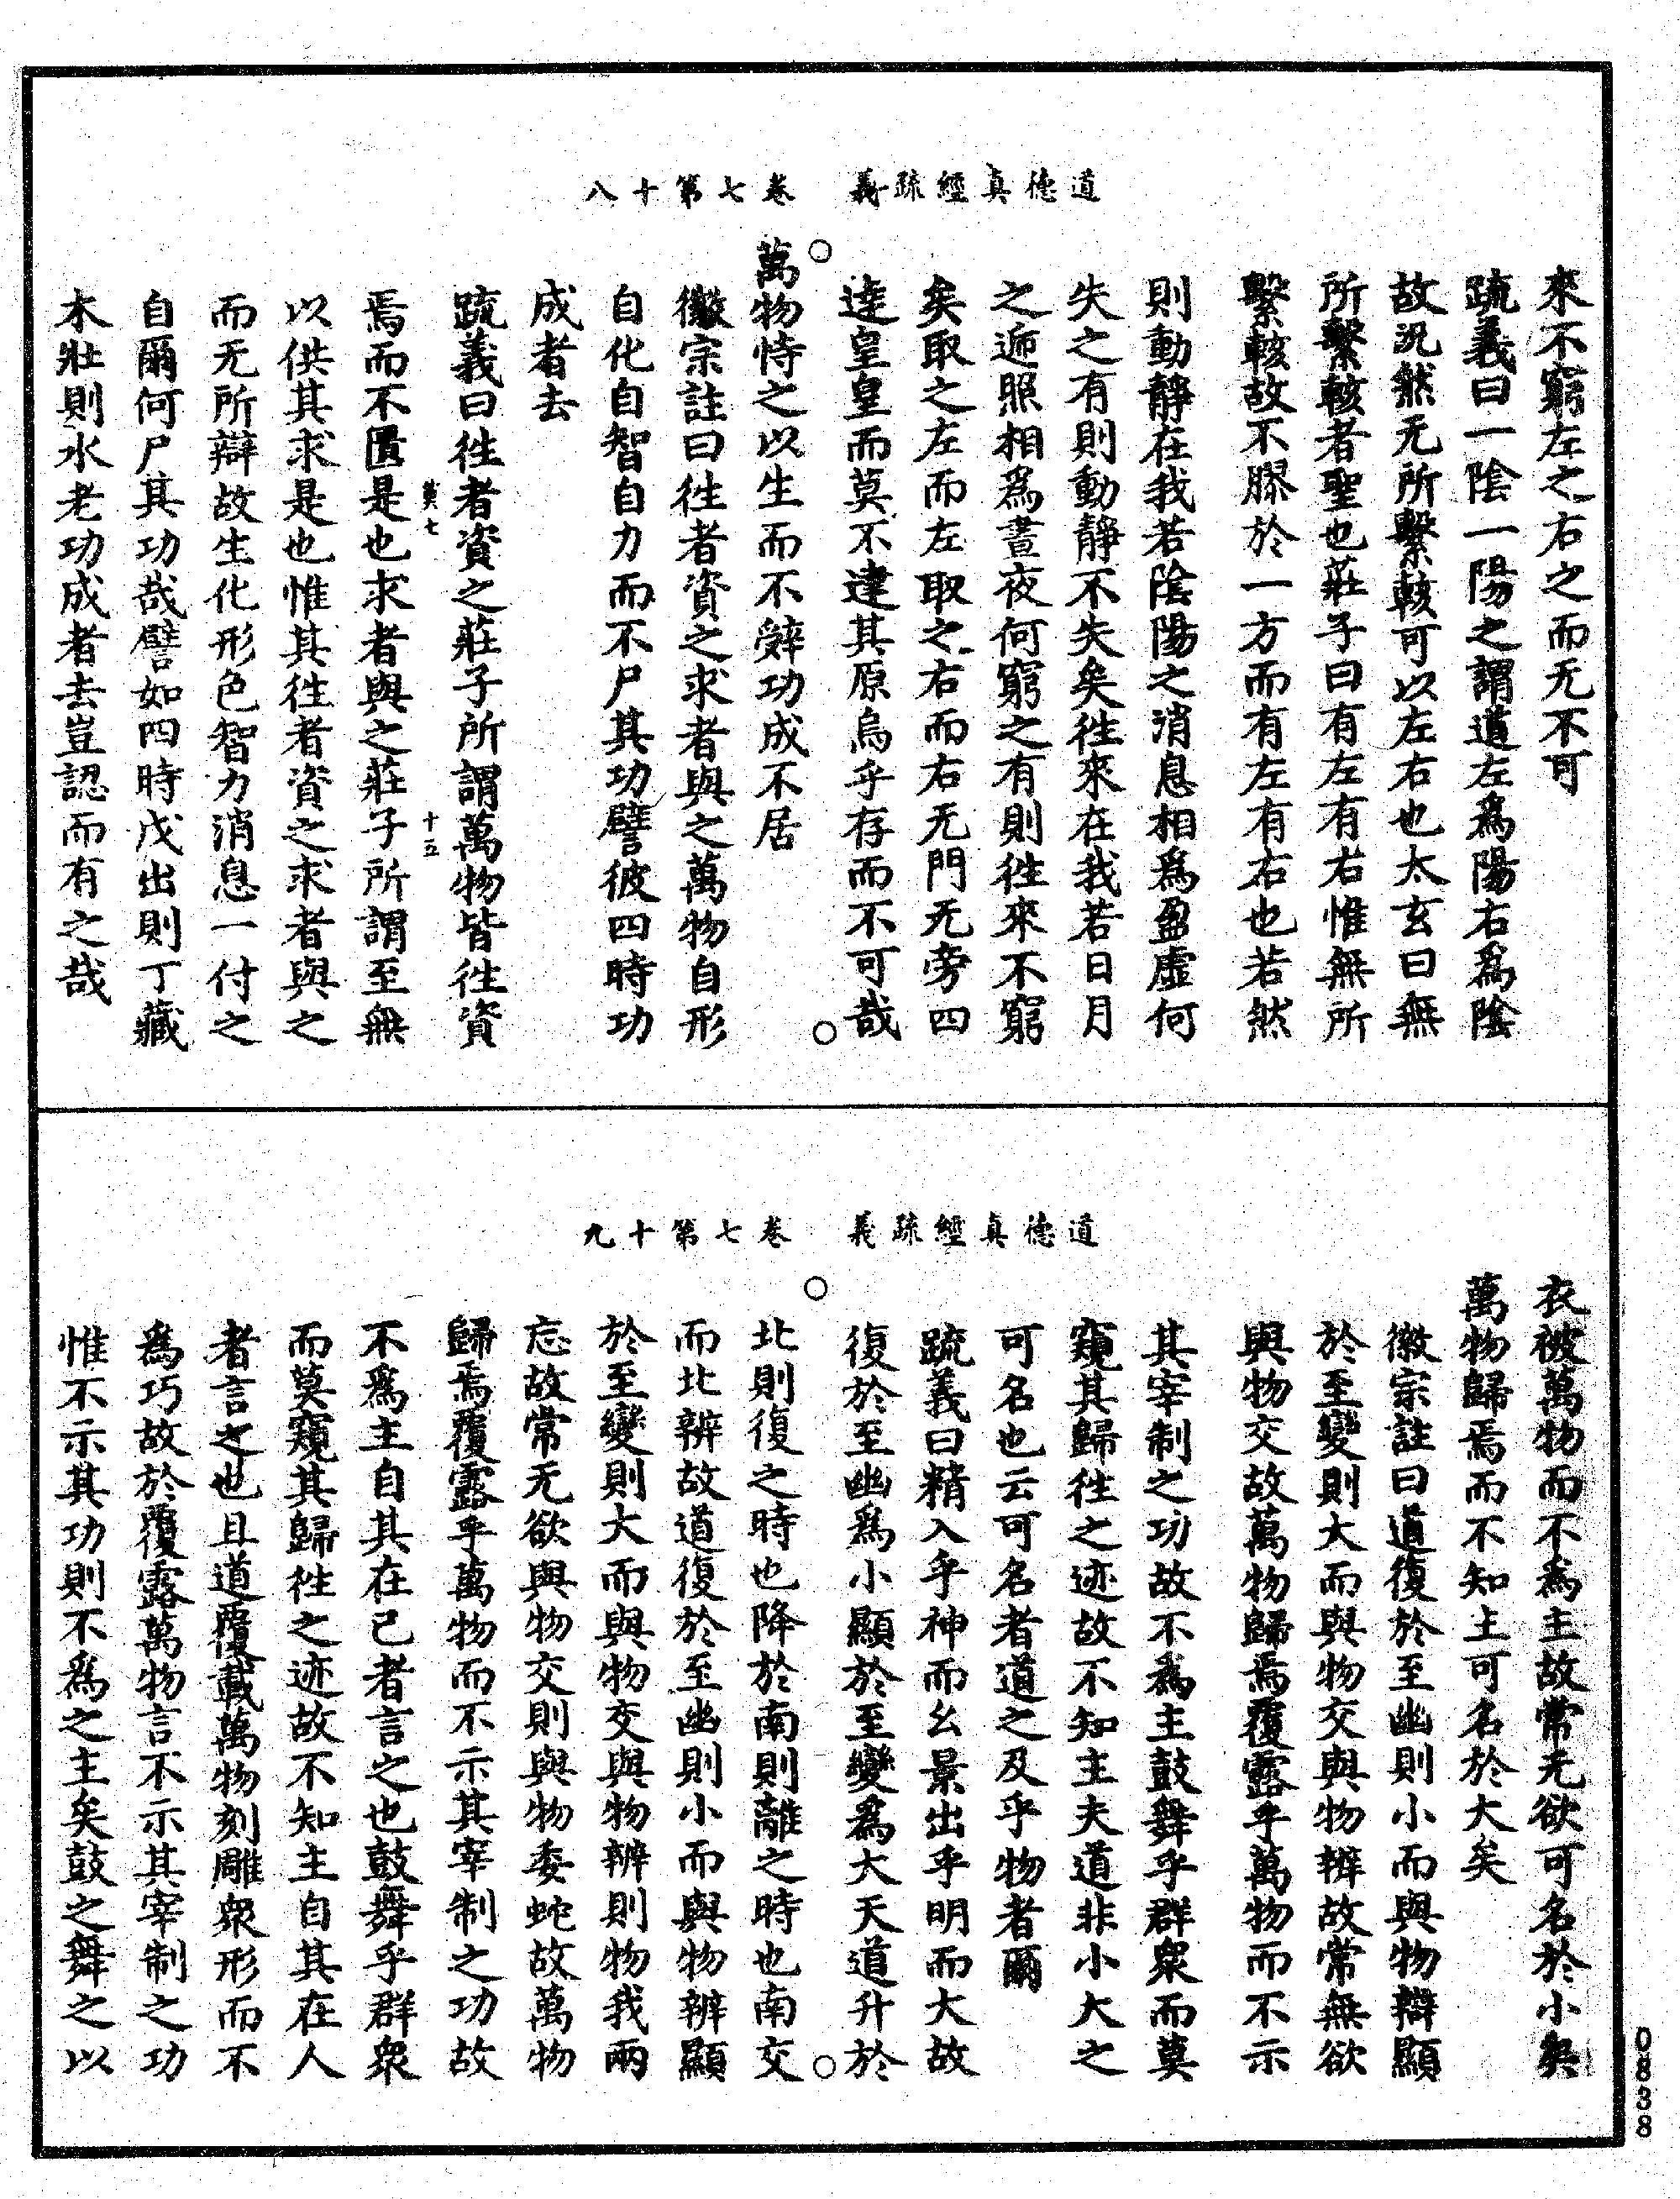 道德真經疏義　卷七第十八
來不窮左之右之而无不可
疏義曰一陰一陽之謂道左爲陽右爲陰
故汎然无所繫輆可以左右也太玄曰無
所繫輆者聖也莊子曰有左有右惟無所
繫輆故不膠於一方而有左有右也若然
則動靜在我若陰陽之消息相爲盈虛何
失之有則動靜不失矣徃來在我若日月
之逓照相爲晝夜何窮之有則徃來不窮
矣取之左而左取之右而右无門无旁四
達皇皇而莫不逮其原烏乎存而不可哉
萬物恃之以生而不辤功成不居
徽宗註曰徃者資之求者與之萬物自形
自化自智自力而不尸其功譬彼四時功
成者去
疏義曰徃者資之莊子所謂萬物皆徃資
莫七
十五
焉而不匱是也求者與之莊子所謂至無
以供其求是也惟其徃者資之求者與之
而无所辯故生化形色智力消息一付之
自爾何尸其功哉譬如四時戊出則丁藏
木壯則水老功成者去豈認而有之哉
道德真經疏義　卷七第十九
衣被萬物而不爲主故常无欲可名於小矣
萬物歸焉而不知主可名於大矣
徽宗註曰道復於至幽則小而與物辯顯
於至變則大而與物交與物辨故常無欲
與物交故萬物歸焉覆露乎萬物而不示
其宰制之功故不爲主鼓舞乎群衆而莫
窺其歸徃之迹故不知主夫道非小大之
可名也云可名者道之及乎物者爾
疏義曰精入乎神而幺景出乎明而大故
復於至幽爲小顯於至變爲大天道升於
北則復之時也降於南則離之時也南交
而北辨故道復於至幽則小而與物辨顯
於至變則大而與物交與物辨則物我兩
忘故常无欲與物交則與物委蛇故萬物
歸焉覆露乎萬物而不示其宰制之功故
不爲主自其在已者言之也鼓舞乎群衆
而莫窺其歸徃之迹故不知主自其在人
者言之也且道覆載萬物刻雕衆形而不
爲巧故於覆露萬物言不示其宰制之功
惟不示其功則不爲之主矣鼓之舞之以
0838